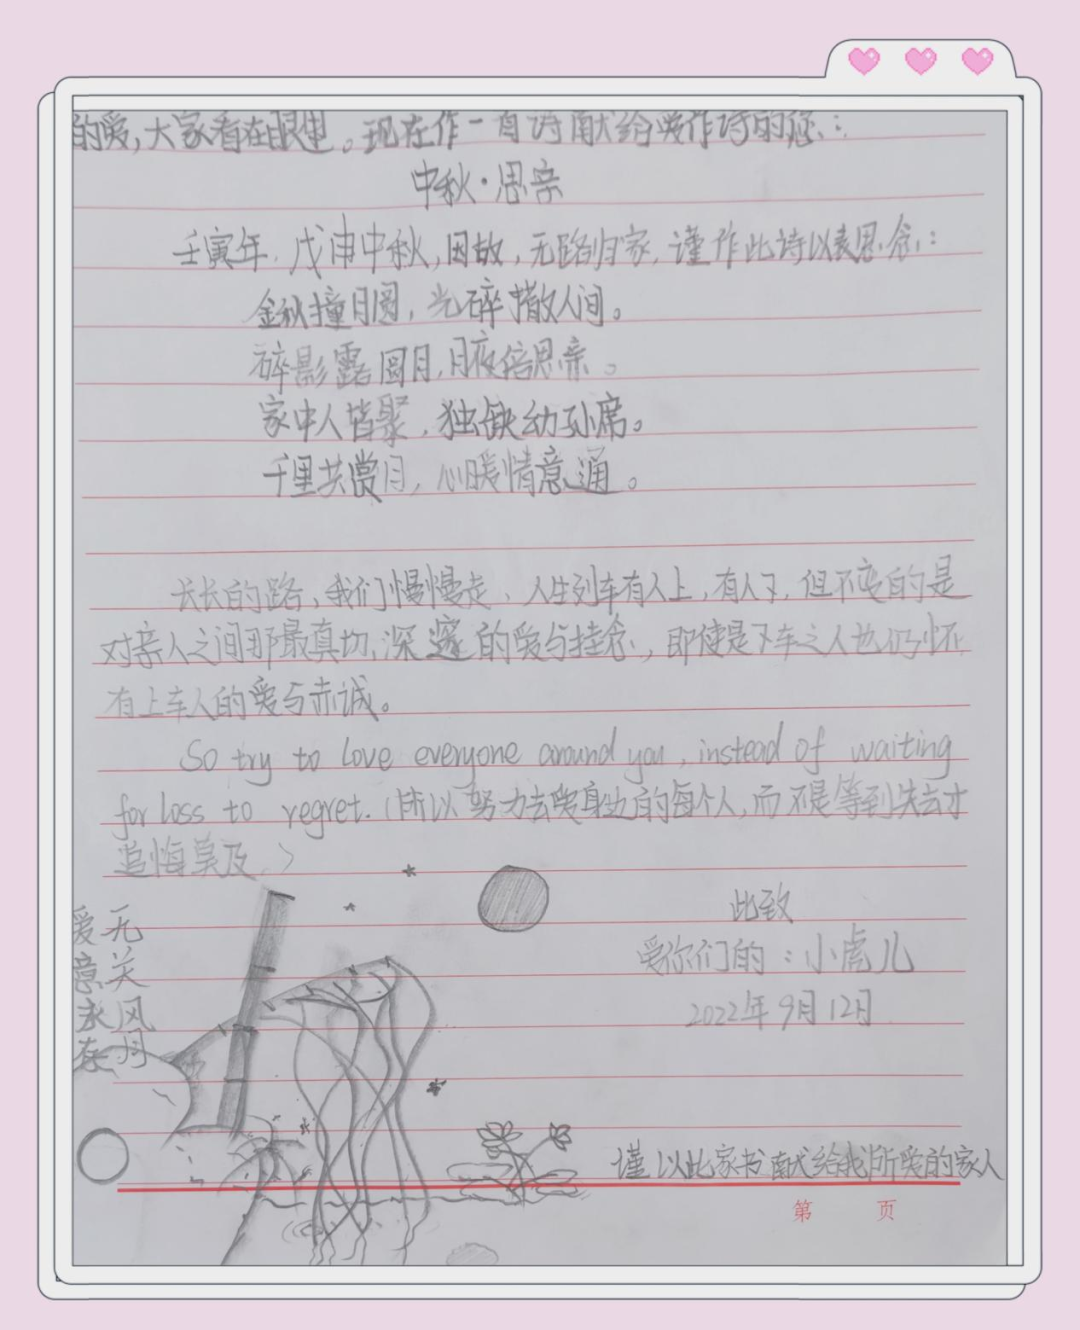 的爱，大家看在眼里。现在作一首诗献给爱作诗的您：
中秋·思亲
壬寅年，戊申中秋，因故，无路归家，谨作此诗以表思念：
金秋撞月圆，光碎撒人间。
碎影露圆月，月夜倍思亲。
家中人皆聚，独缺幼孙席。
千里共赏月，心暖情意通。
长长的路，我们慢慢走，人生列车有人上，有人下，但不变的是
对亲人之间那最真切、深邃的爱与挂念，即使是下车之人也仍怀
有上车人的爱与赤诚。
So try to love everyone around you, instead of waiting
for loss to regret.（所以努力去爱身边的每个人，而不是等到失去才
追悔莫及）
此致
爱你们的：小虎儿
2022年9月12日
无关风月
爱意永在
谨以此家书献给我所爱的家人
第 页